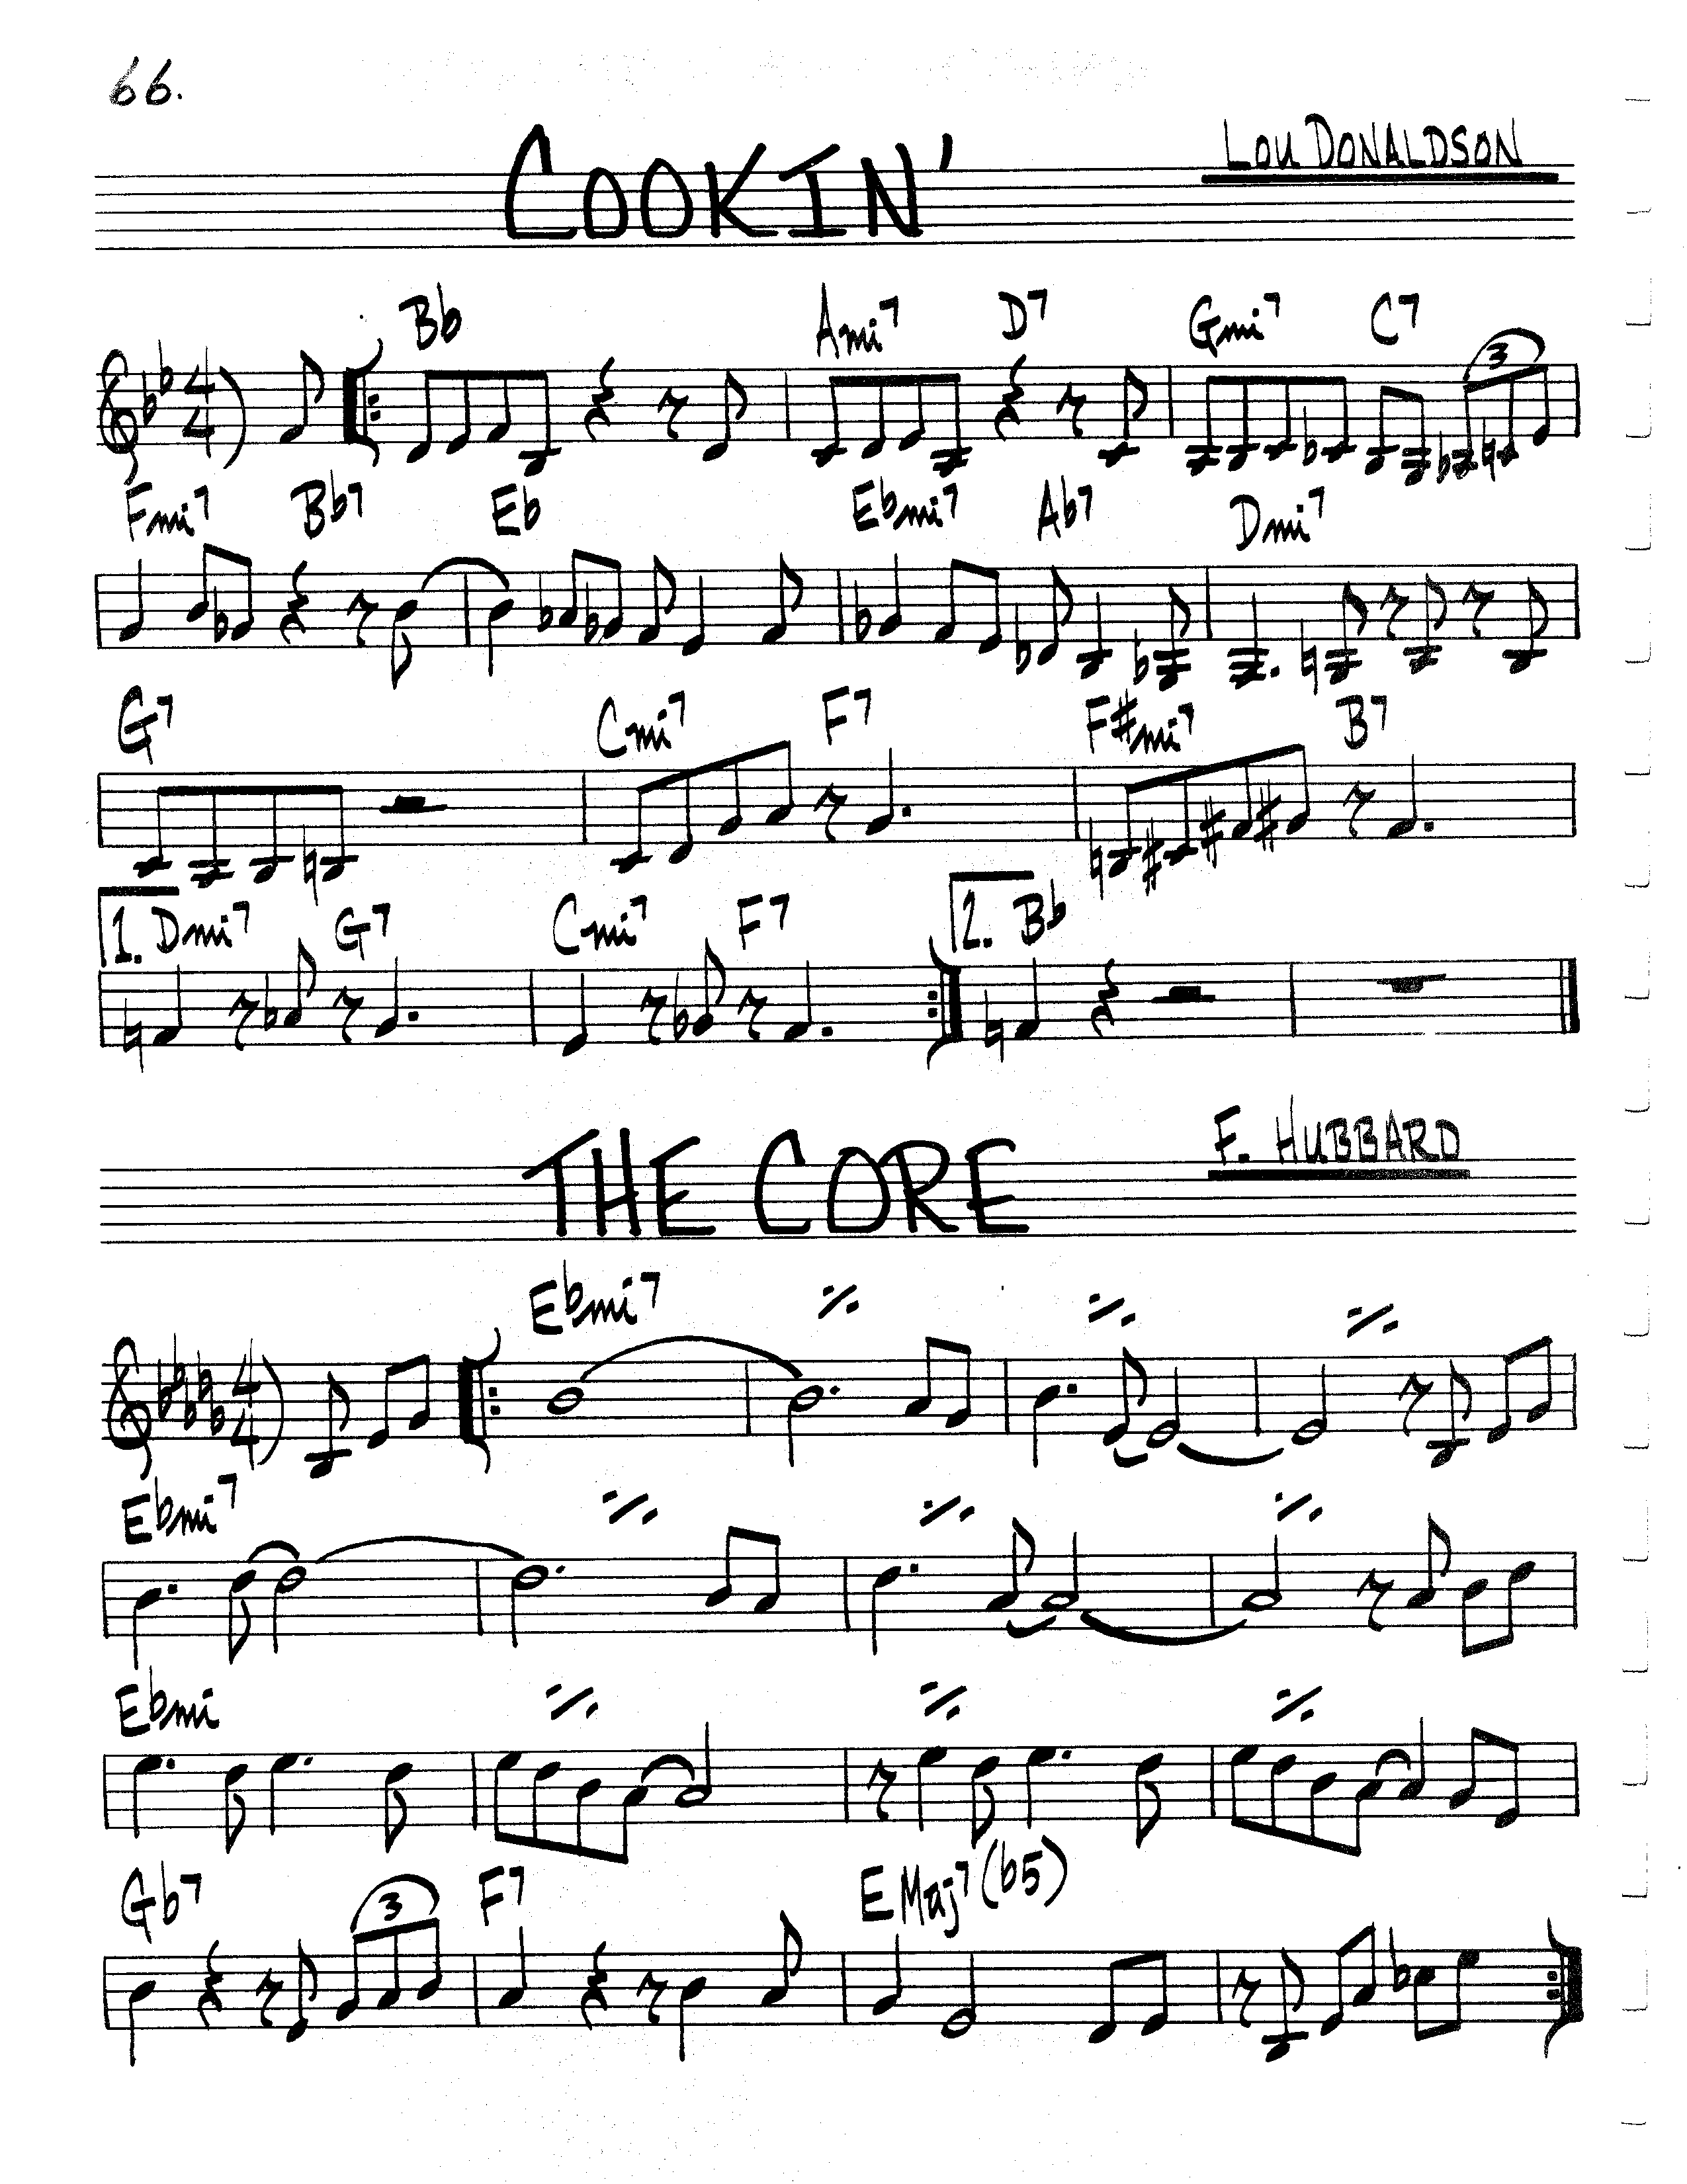 66.
COOKIN'
LOU DONALDSON
Bb Ami7 D7 Gmi7 C7
4 4 3
Fmi7 Bb7 Eb Ebmi7 Ab7 Dmi7
G7 Cmi7 F7 F#mi7 B7
1. Dmi7 G7 Cmi7 F7 2. Bb
THE CORE
F. HUBBARD
Ebmi7
4 4
Ebmi7
Ebmi
Gb7 3 F7 EMaj7(b5)